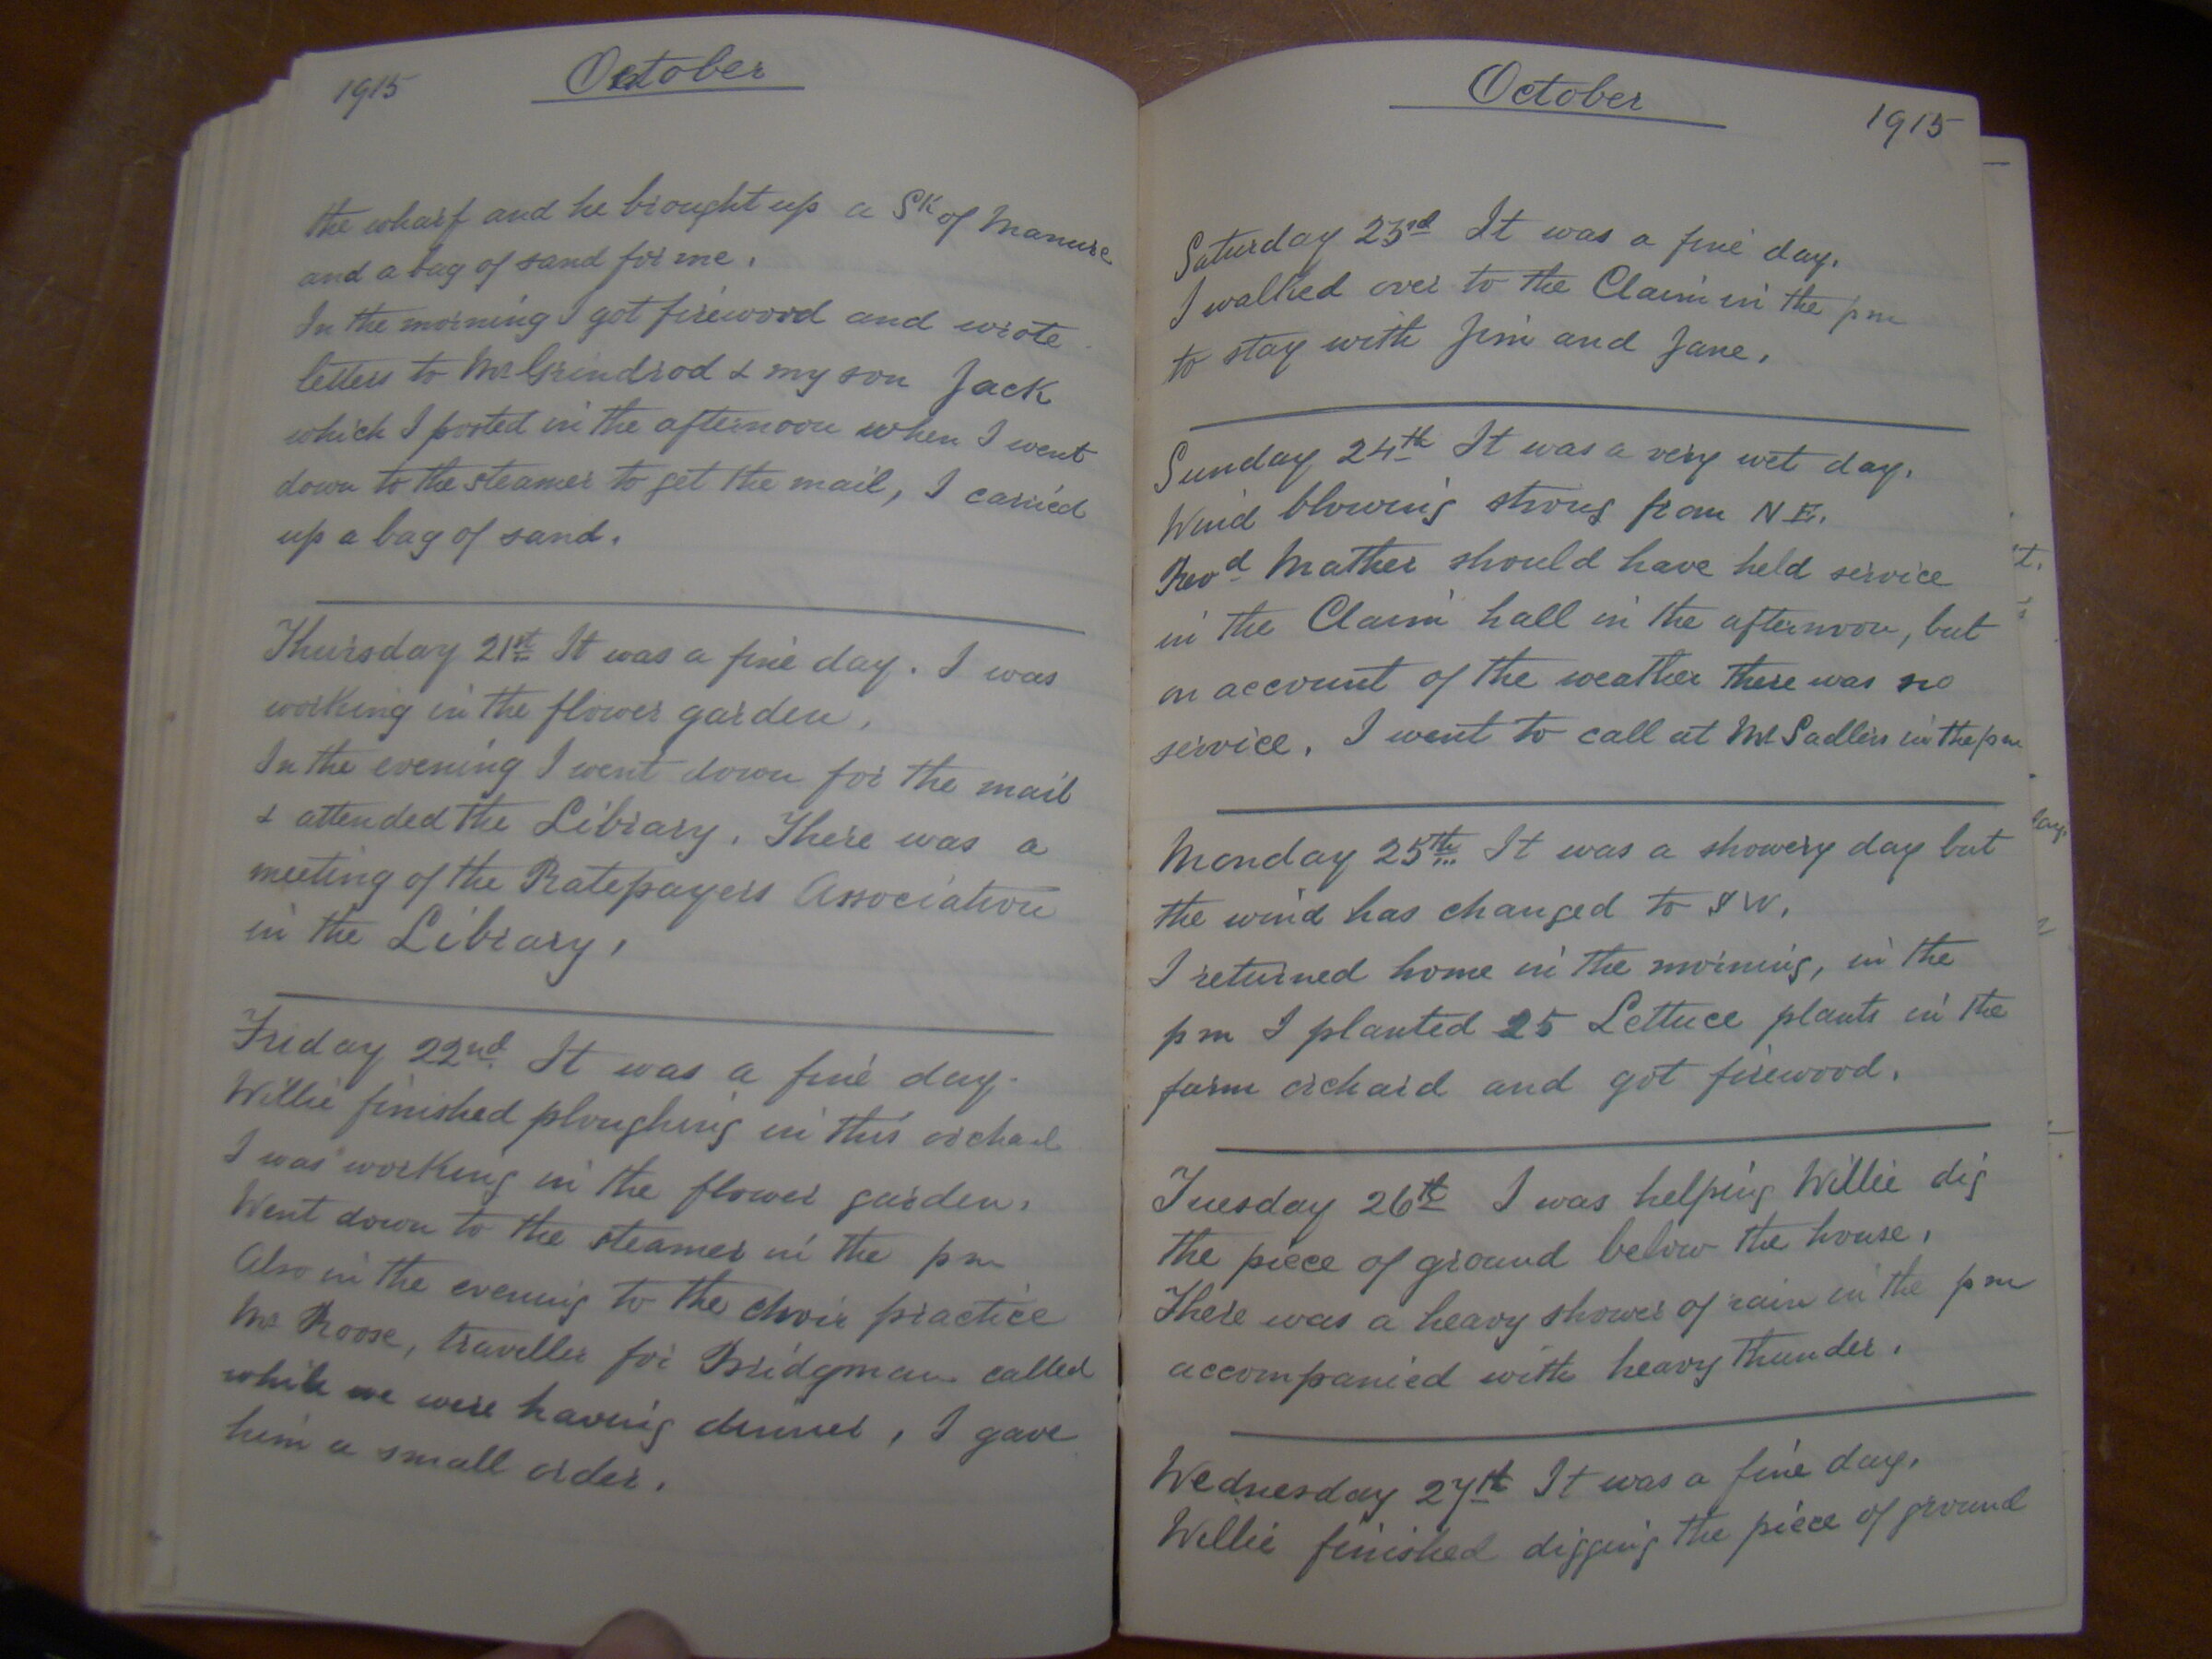 1915
October
the wharf and he brought up a Sk of Manure
and a bag of sand for me.
In the morning I got firewood and wrote
letters to Mr Grindrod & my son Jack
which I posted in the afternoon when I went
down to the steamer to get the mail, I carried
up a bag of sand.
Thursday 21st It was a fine day. I was
working in the flower garden.
In the evening I went down for the mail
& attended the Library. There was a
meeting of the Ratepayers Association
in the Library.
Friday 22nd It was a fine day.
Willie finished ploughing in this orchard
I was working in the flower garden.
Went down to the steamer in the pm
Also in the evening to the choir practice
Mr Roose, traveller for Bridgman called
while we were having dinner, I gave
him a small order.
October
1915
Saturday 23rd It was a fine day.
I walked over to the Claim in the pm
to stay with Jim and Jane.
Sunday 24th It was a very wet day.
Wind blowing strong from N E.
Revd Mather should have held service
in the Claim hall in the afternoon, but
on account of the weather there was no
service. I went to call at Mr Sadlers in the pm
Monday 25th It was a showery day but
the wind has changed to S W.
I returned home in the morning, in the
pm I planted 25 Lettuce plants in the
farm orchard and got firewood.
Tuesday 26th I was helping Willie dig
the piece of ground below the house.
There was a heavy shower of rain in the pm
accompanied with heavy thunder.
Wednesday 27th It was a fine day.
Willie finished digging the piece of ground